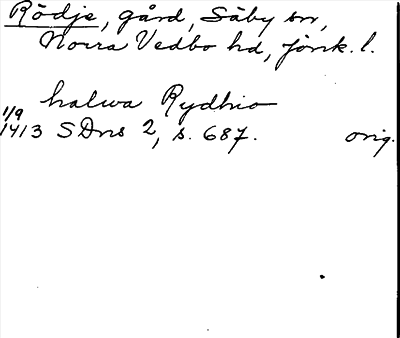 Rödje, gård, Säby sn,
Norra Vedbo hd, Jönk. l.
halwa Rydhio
1/9
1413 SDns 2, s. 687. orig.